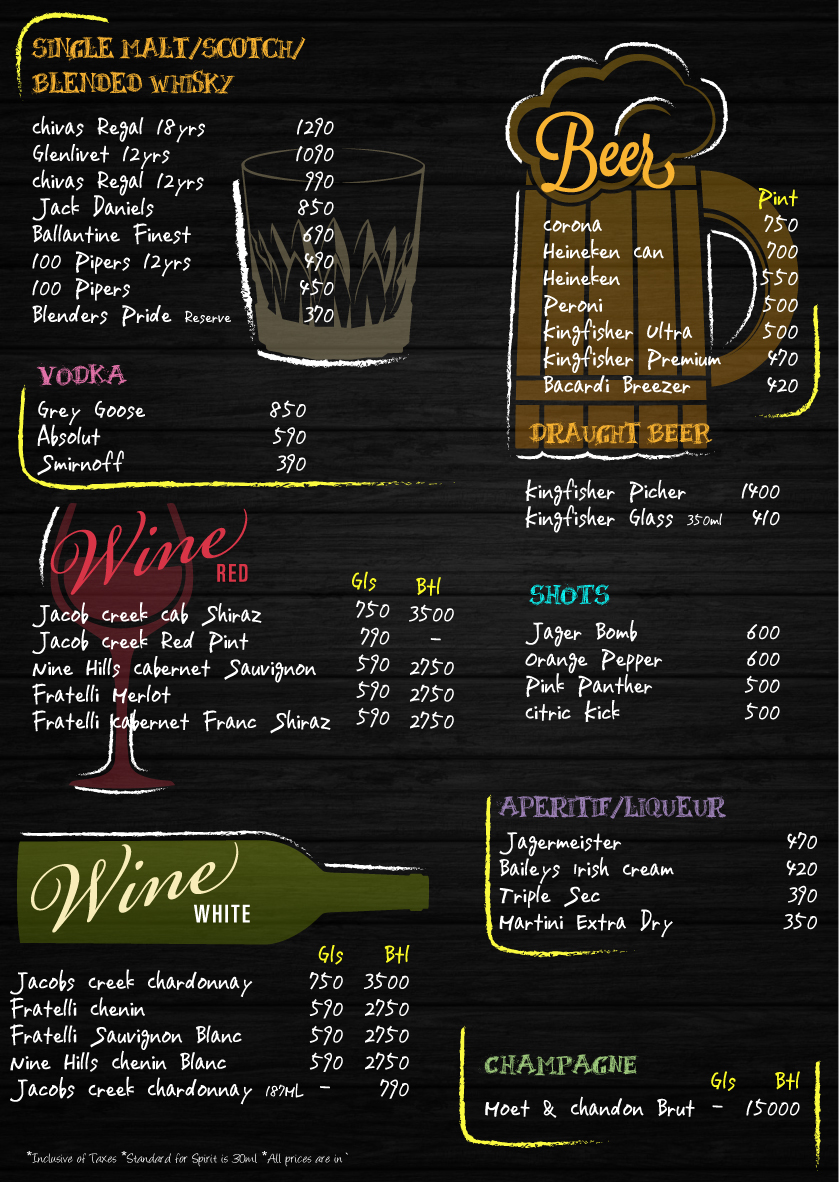 SINGLE MALT/SCOTCH/
BLENDED WHISKY
chivas Regal 18yrs 1290
Glenlivet 12yrs 1090
chivas Regal 12yrs 990
Jack Daniels 850
Ballantine Finest 690
100 Pipers 12yrs 490
100 Pipers 450
Blenders Pride Reserve 370
VODKA
Grey Goose 850
Absolut 590
Smirnoff 390
Wine
RED
Gls Btl
Jacob creek cab Shiraz 750 3500
Jacob creek Red Pint 790 -
Nine Hills cabernet Sauvignon 590 2750
Fratelli Merlot 590 2750
Fratelli cabernet Franc Shiraz 590 2750
Wine
WHITE
Gls Btl
Jacobs creek chardonnay 750 3500
Fratelli chenin 590 2750
Fratelli Sauvignon Blanc 590 2750
Nine Hills chenin Blanc 590 2750
Jacobs creek chardonnay 187ML - 790
*Inclusive of Taxes *Standard for Spirit is 30ml *All prices are in `
Beer
Pint
corona 750
Heineken can 700
Heineken 550
Peroni 500
kingfisher Ultra 500
kingfisher Premium 470
Bacardi Breezer 420
DRAUGHT BEER
kingfisher Picher 1400
kingfisher Glass 350ml 410
SHOTS
Jager Bomb 600
orange Pepper 600
Pink Panther 500
citric Kick 500
APERITIF/LIQUEUR
Jagermeister 470
Baileys Irish cream 420
Triple Sec 390
Martini Extra Dry 350
CHAMPAGNE
Gls Btl
Moet & chandon Brut - 15000